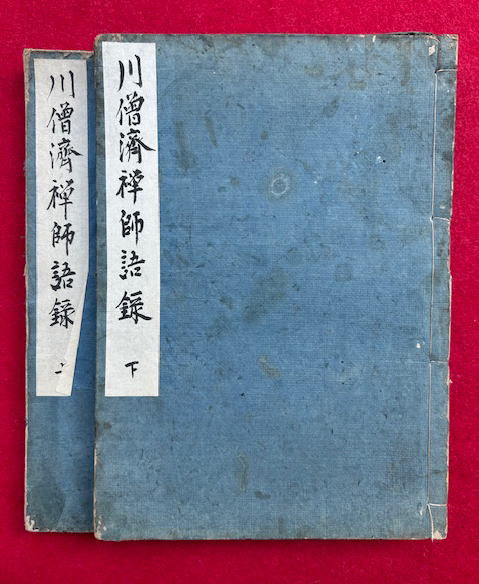 川僧濟禅師語録 下
川僧濟禅師語録